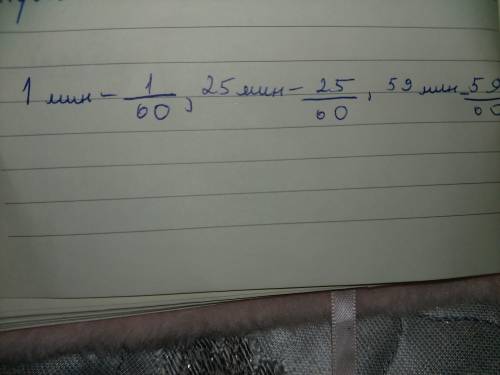 1 мин - 1/60, 25 мин - 25/60, 59 мин - 59/60